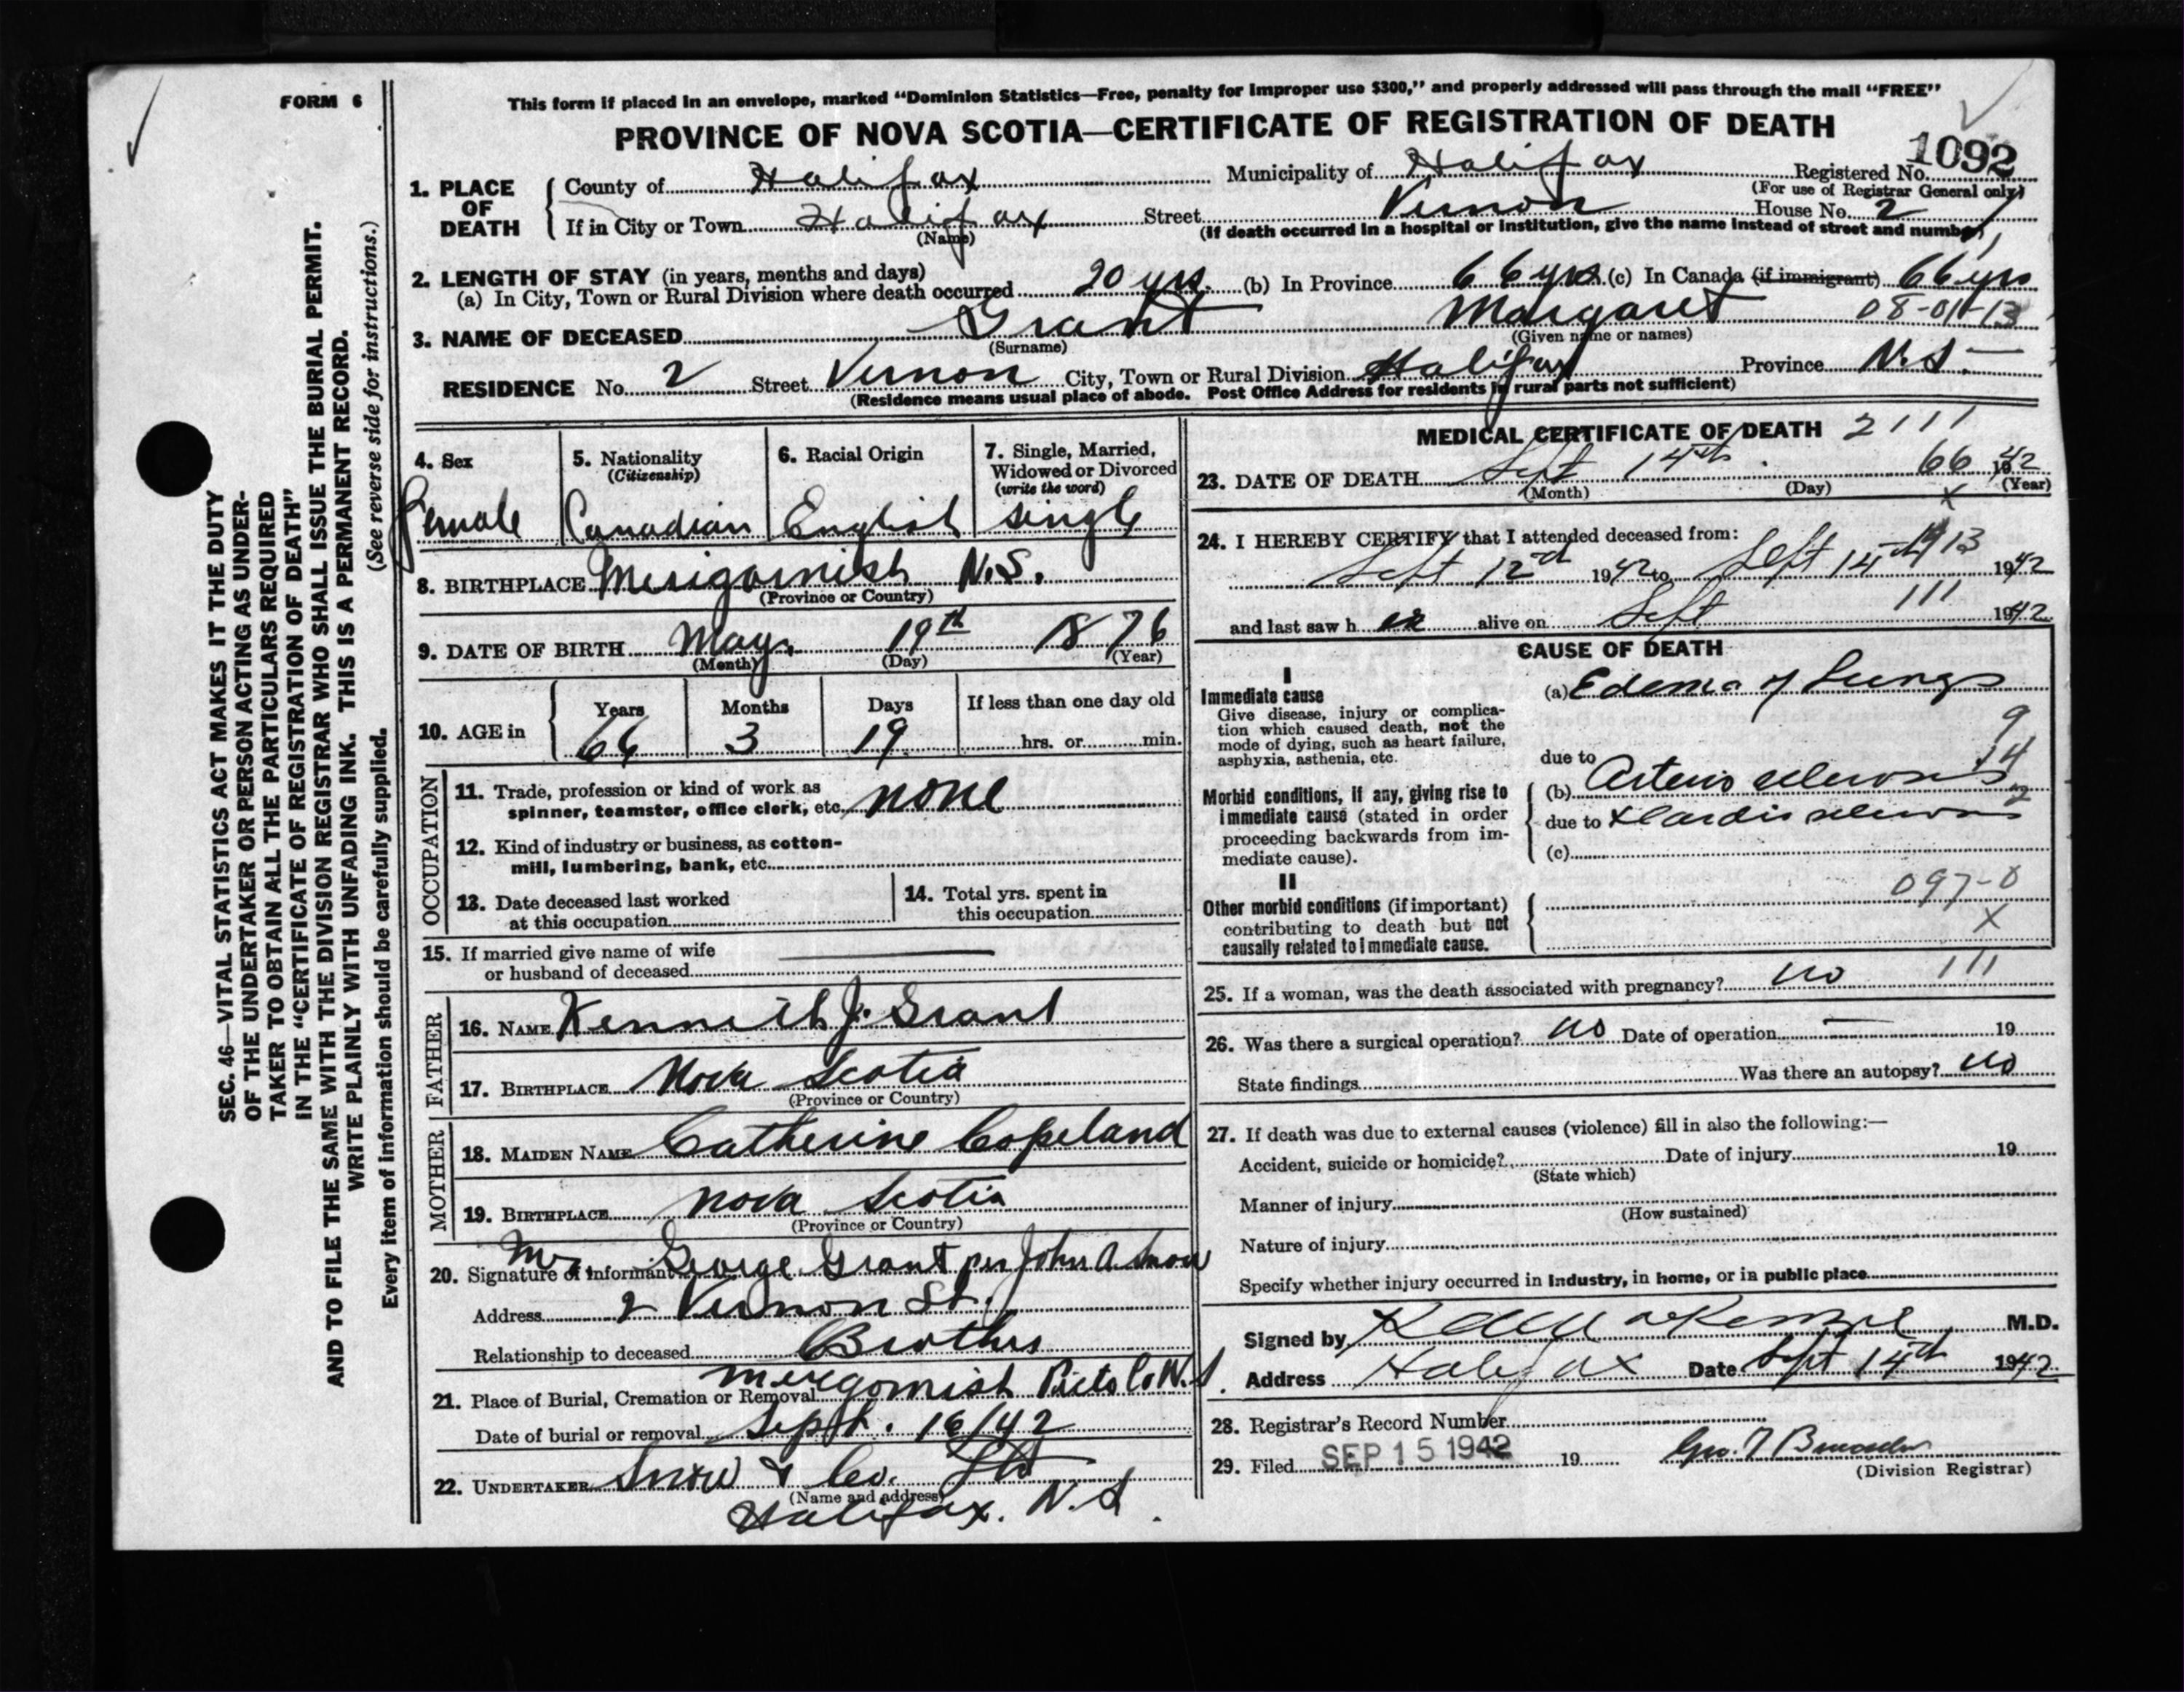 FORM 6
This form if placed in an envelope, marked “Dominion Statistics—Free, penalty for improper use $300,” and properly addressed will pass through the mail “FREE”
PROVINCE OF NOVA SCOTIA—CERTIFICATE OF REGISTRATION OF DEATH
1092
1. PLACE OF DEATH
County of Halifax Municipality of Halifax Registered No.
(For use of Registrar General only)
If in City or Town Halifax Street Vernon House No. 2
(Name) (If death occurred in a hospital or institution, give the name instead of street and number)
2. LENGTH OF STAY (in years, months and days)
(a) In City, Town or Rural Division where death occurred 20 yrs. (b) In Province 66 yrs (c) In Canada (if immigrant) 66 yrs
3. NAME OF DECEASED Grant Margaret 08-01-13
(Surname) (Given name or names)
RESIDENCE No. 2 Street Vernon City, Town or Rural Division Halifax Province N.S.
(Residence means usual place of abode. Post Office Address for residents in rural parts not sufficient)
4. Sex
Female
5. Nationality
(Citizenship)
Canadian
6. Racial Origin
English
7. Single, Married,
Widowed or Divorced
(write the word)
single
8. BIRTHPLACE Merigomish N.S.
(Province or Country)
9. DATE OF BIRTH May 19th 1876
(Month) (Day) (Year)
10. AGE in
Years Months Days If less than one day old
66 3 19 hrs. or min.
OCCUPATION
11. Trade, profession or kind of work as
spinner, teamster, office clerk, etc. none
12. Kind of industry or business, as cotton-
mill, lumbering, bank, etc.
13. Date deceased last worked
at this occupation
14. Total yrs. spent in
this occupation
15. If married give name of wife
or husband of deceased
FATHER
16. NAME Kenneth J. Grant
17. BIRTHPLACE Nova Scotia
(Province or Country)
MOTHER
18. MAIDEN NAME Catherine Copeland
19. BIRTHPLACE Nova Scotia
(Province or Country)
20. Signature of informant Mr. George Grant per John A. Snow
Address 2 Vernon St.
Relationship to deceased Brother
21. Place of Burial, Cremation or Removal Merigomish Pictou Co N.S.
Date of burial or removal Sept. 16/42
22. UNDERTAKER Snow & Co. Ltd
(Name and address)
Halifax. N.S.
MEDICAL CERTIFICATE OF DEATH 2111
23. DATE OF DEATH Sept 14th 66 1942
(Month) (Day) (Year)
x
24. I HEREBY CERTIFY that I attended deceased from:
Sept 12nd 1942 to Sept 14th 1942
and last saw her alive on Sept 111 1942
CAUSE OF DEATH
I
Immediate cause
Give disease, injury or complica-
tion which caused death, not the
mode of dying, such as heart failure,
asphyxia, asthenia, etc.
(a) Edema of Lungs
9
14
due to
Morbid conditions, if any, giving rise to
immediate cause (stated in order
proceeding backwards from im-
mediate cause).
(b) Arterio sclerosis
due to
(c)
II
Other morbid conditions (if important)
contributing to death but not
causally related to immediate cause.
097-0
X
25. If a woman, was the death associated with pregnancy? no 111
26. Was there a surgical operation? no Date of operation 19
State findings Was there an autopsy? no
27. If death was due to external causes (violence) fill in also the following:—
Accident, suicide or homicide? Date of injury 19
(State which)
Manner of injury
(How sustained)
Nature of injury
Specify whether injury occurred in industry, in home, or in public place
Signed by M.D.
Address Halifax Date Sept 14th 1942
28. Registrar's Record Number
29. Filed SEP 15 1942 19
(Division Registrar)
SEC. 46—VITAL STATISTICS ACT MAKES IT THE DUTY
OF THE UNDERTAKER OR PERSON ACTING AS UNDER-
TAKER TO OBTAIN ALL THE PARTICULARS REQUIRED
IN THE “CERTIFICATE OF REGISTRATION OF DEATH”
AND TO FILE THE SAME WITH THE DIVISION REGISTRAR WHO SHALL ISSUE THE BURIAL PERMIT.
WRITE PLAINLY WITH UNFADING INK. THIS IS A PERMANENT RECORD.
(See reverse side for instructions.)
Every item of information should be carefully supplied.